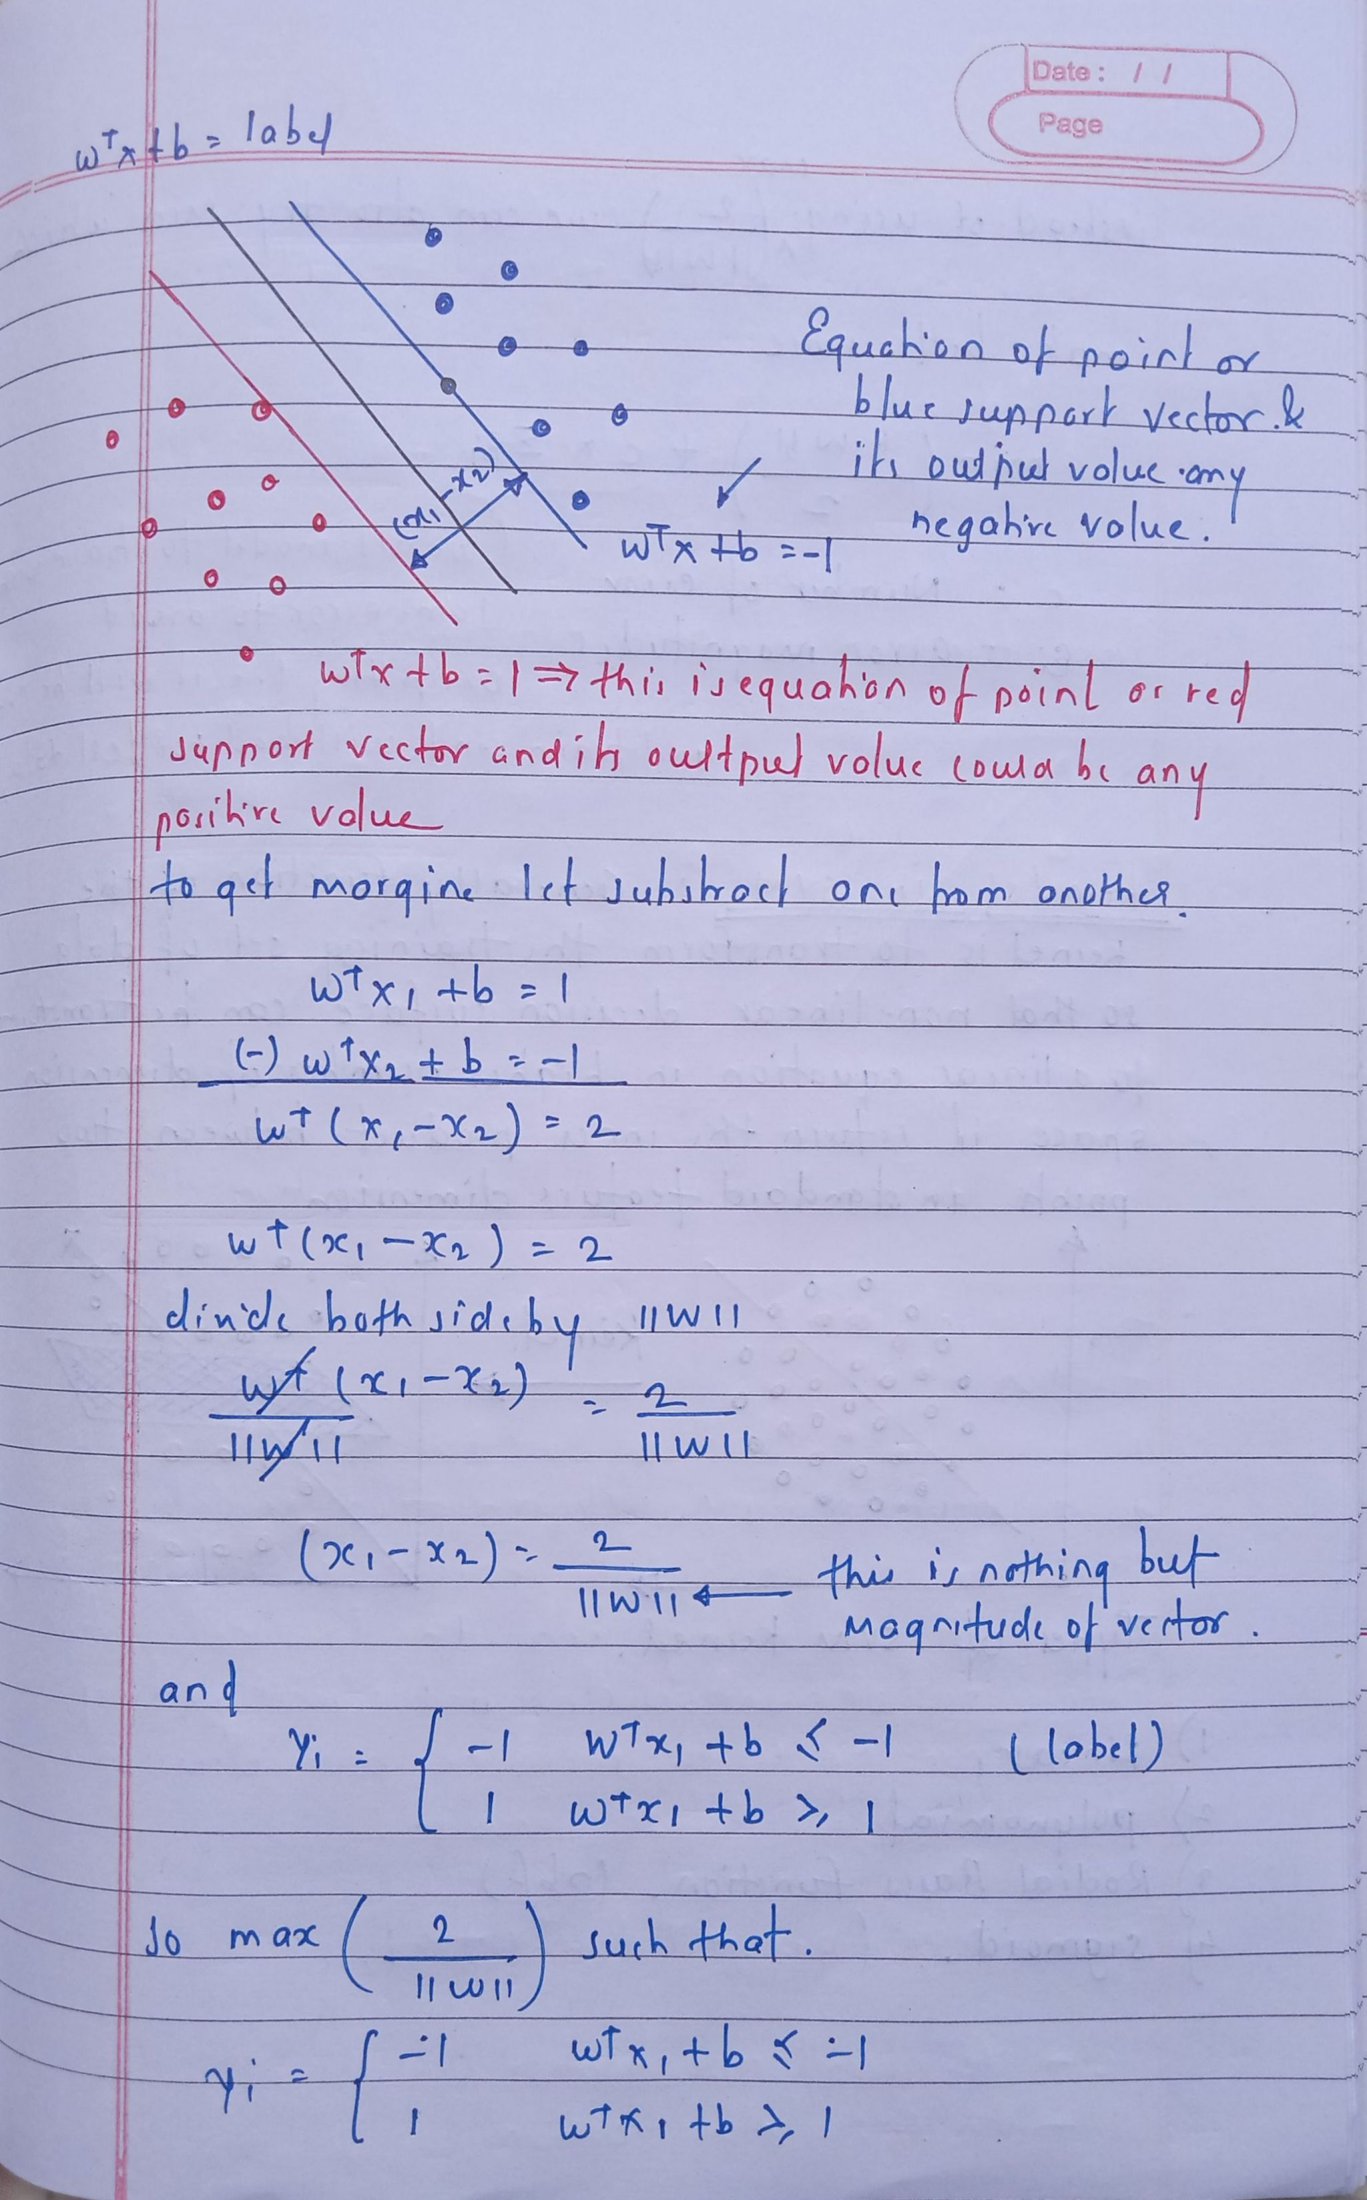 Date : / /
Page
wᵀx+b = label
Equation of point or
blue support vector &
its output value any
negative value.
(x₁-x₂)
wᵀx+b=-1
wᵀx+b=1⇒this is equation of point or red
support vector and its oultput value could be any
positive value
to get morgine let substract one from another.
wᵀx₁+b=1
(-) wᵀx₂+b=-1
wᵀ(x₁-x₂)=2
wᵀ(x₁-x₂)=2
divide both side by ||W||
wᵀ(x₁-x₂) = 2
||W|| ||W||
(x₁-x₂) = 2
||W|| ← this is nothing but
Magnitude of vector.
and
Yᵢ = { -1 wᵀx₁+b ≤ -1 (label)
1 wᵀx₁+b ≥ 1
so max ( 2 ) such that.
||W||
yᵢ = { -1 wᵀx₁+b ≤ -1
1 wᵀx₁+b ≥ 1